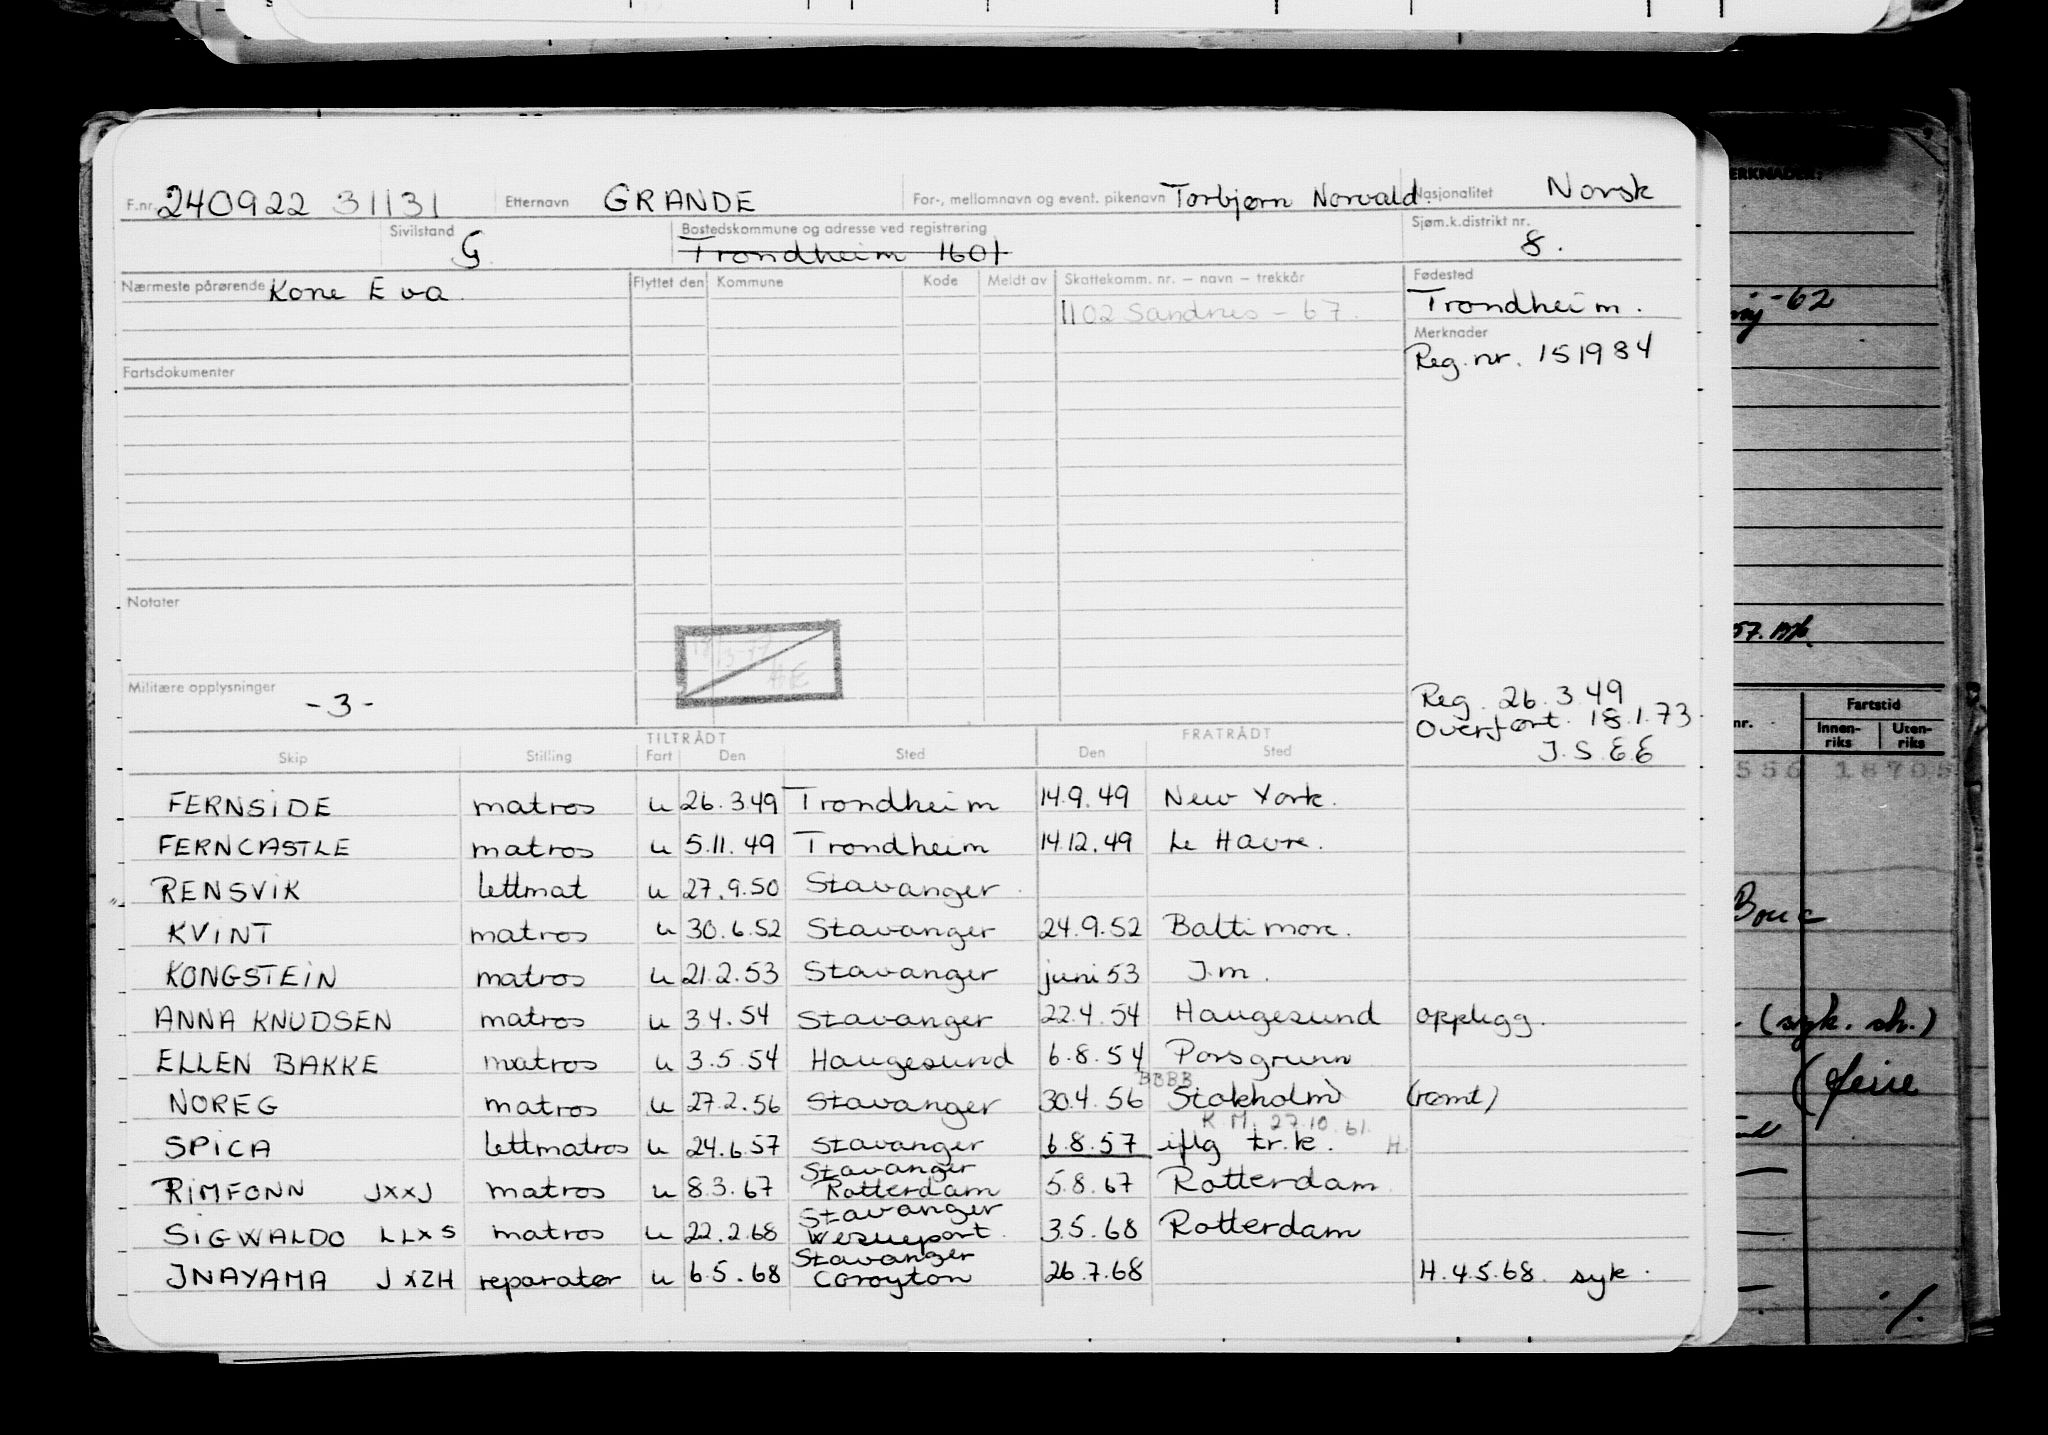 F.nr. 240922 31131 Etternavn GRANDE For-, mellomnavn og event. pikenavn Torbjørn Norvald. Nasjonalitet Norsk
Sivilstand G Bostedskommune og adresse ved registrering Trondheim 1601 Sjøm.k.distrikt nr. 8.
Nærmeste pårørende Kone Eva. Flyttet den Kommune Kode Meldt av Skattekomm. nr. — navn — trekkår Fødested
1102 Sandnes - 67. Trondheim.
Merknader
Reg. nr. 151984
Fartsdokumenter
Notater
Militære opplysninger
-3-
Reg. 26.3.49
Overført. 18.1.73
J.S.E.E
TILTRÅDT FRATRÅDT
Skip Stilling Fart Den Sted Den Sted
FERNSIDE matros u 26.3.49 Trondheim 14.9.49 New York.
FERNCASTLE matros u 5.11.49 Trondheim 14.12.49 Le Havre.
RENSVIK lettmat u 27.9.50 Stavanger.
KVINT matros u 30.6.52 Stavanger 24.9.52 Baltimore.
KONGSTEIN matros u 21.2.53 Stavanger juni 53 J.m.
ANNA KNUDSEN matros u 3.4.54 Stavanger 22.4.54 Haugesund opplegg.
ELLEN BAKKE matros u 3.5.54 Haugesund 6.8.54 Porsgrunn
BBBB
NOREG matros u 27.2.56 Stavanger 30.4.56 Stokholm (rømt)
K.M. 27.10.61.
SPICA lettmatros u 24.6.57 Stavanger 6.8.57 iflg tr.k. H.
RIMFONN JXXJ matros u 8.3.67 Stavanger Rotterdam 5.8.67 Rotterdam.
SIGWALDO LLXS matros u 22.2.68 Stavanger 3.5.68 Rotterdam
JNAYAMA JXZH reparatør u 6.5.68 Stavanger Coroyton 26.7.68 H.4.5.68. syk.
ERKNADER:
-62
57.
nr. Fartstid
Innen-riks Uten-riks
556 18705
Bouc
(syk. sh.)
(ferie